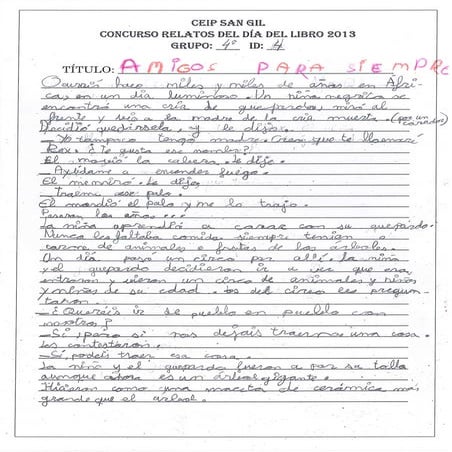 CEIP SAN GIL
CONCURSO RELATOS DEL DÍA DEL LIBRO 2013
GRUPO: 4º ID: A
TÍTULO: AMIGOS PARA SIEMPRE
Ocurrió hace miles y miles de años en Áfri
ca, en un día luminoso. Un niña negrita se
encontró una cría de guepardo, miró al
frente y vio a la madre de la cría muerta. (por un cazador)
Decidió quedársela. y le dijo:
- Yo tampoco tengo madre. Creo que te llamaré
Rex. ¿Te gusta ese nombre?
El movió la cabeza. Le dijo.
- Ayúdame a encender fuego.
El me miró. Le dijo
- Traeme ese palo.
El mordió el palo y me lo trajo.
Pasaron los años...
La niña aprendió a cazar con su guepardo.
Nunca les faltaba comida, siempre tenían o
carne de animales o frutas de los árboles.
Un día pasó un circo por allí. La niña
y el guepardo decidieron ir a ver que era,
entraron y vieron un circo de animales y niños
y niñas de su edad. Los del circo les pregun
taron.
- ¿Queréis ir de pueblo en pueblo con
nosotros?
- Sí, pero si nos dejáis traernos una cosa.
Les contestaron.
- Sí, podéis traer esa cosa.
La niña y el guepardo fueron a por su
aunque ahora es un árbol gigante.
Hicieron como una maceta de cerámica más
grande que el árbol.